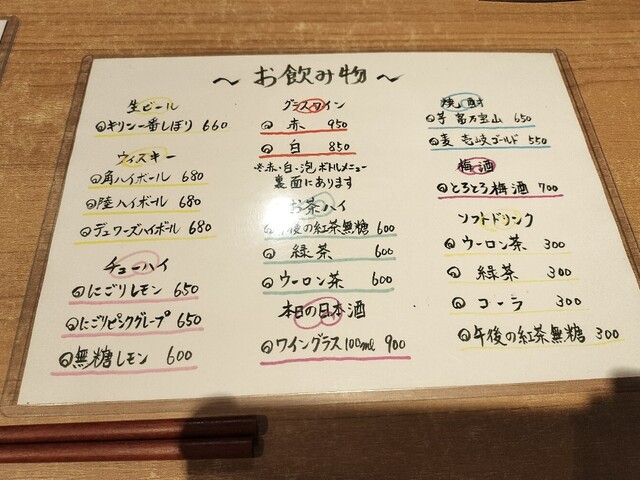 〜お飲み物〜
生ビール
キリン一番しぼり 660
ウィスキー
角ハイボール 680
陸ハイボール 680
デュワーズハイボール 680
チューハイ
にごりレモン 650
にごりピンクグレープ 650
無糖レモン 600
グラスワイン
赤 950
白 850
※赤・白・泡 ボトルメニュー
裏面にあります
お茶ハイ
午後の紅茶無糖 600
緑茶 600
ウーロン茶 600
本日の日本酒
ワイングラス100ml 900
焼酎
芋 富乃宝山 650
麦 壱岐ゴールド 550
梅酒
とろとろ梅酒 700
ソフトドリンク
ウーロン茶 300
緑茶 300
コーラ 300
午後の紅茶無糖 300